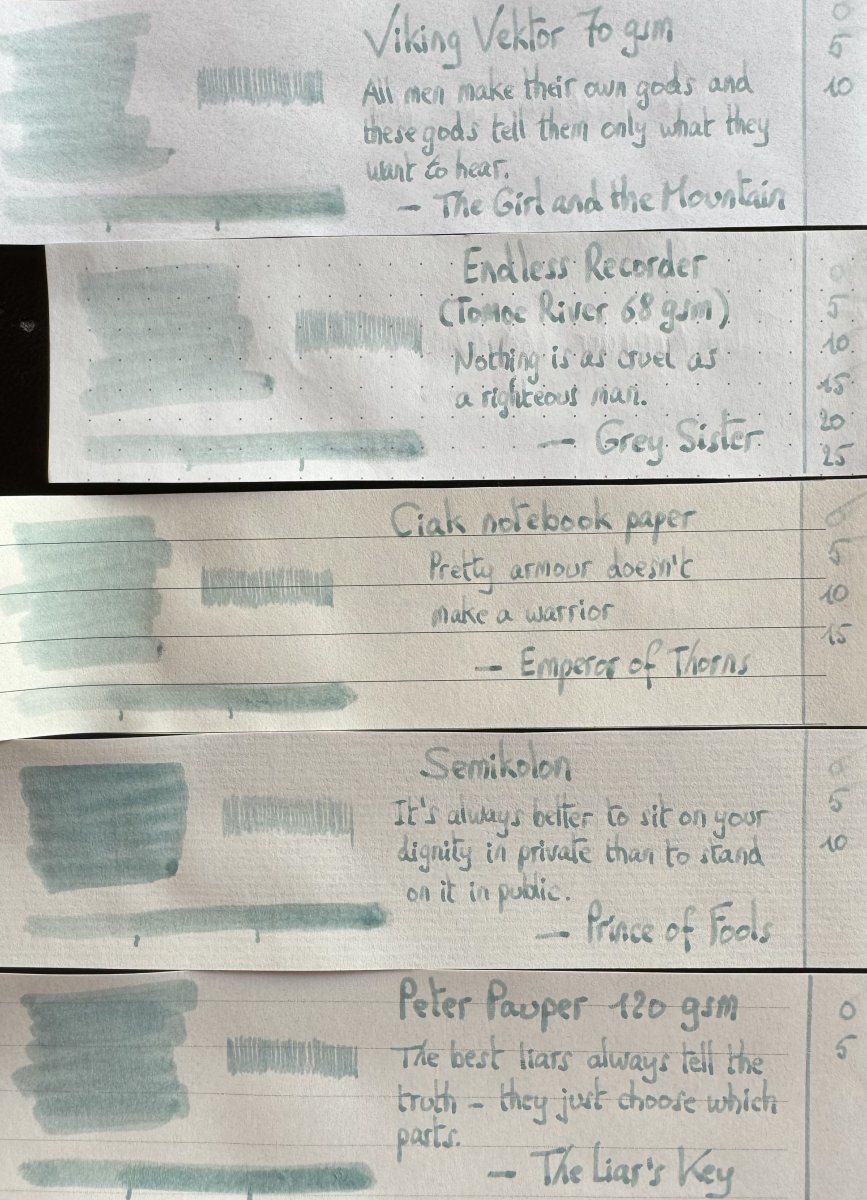 Viking Vektor 70 gsm
All men make their own gods and
these gods tell them only what they
want to hear.
— The Girl and the Mountain
0
5
10
Endless Recorder
(Tomoe River 68 gsm)
Nothing is as cruel as
a righteous man.
— Grey Sister
0
5
10
15
20
25
Ciak notebook paper
Pretty armour doesn't
make a warrior
— Emperor of Thorns
0
5
10
15
Semikolon
It's always better to sit on your
dignity in private than to stand
on it in public.
— Prince of Fools
0
5
10
Peter Pauper 120 gsm
The best liars always tell the
truth – they just choose which
parts.
— The Liar's Key
0
5